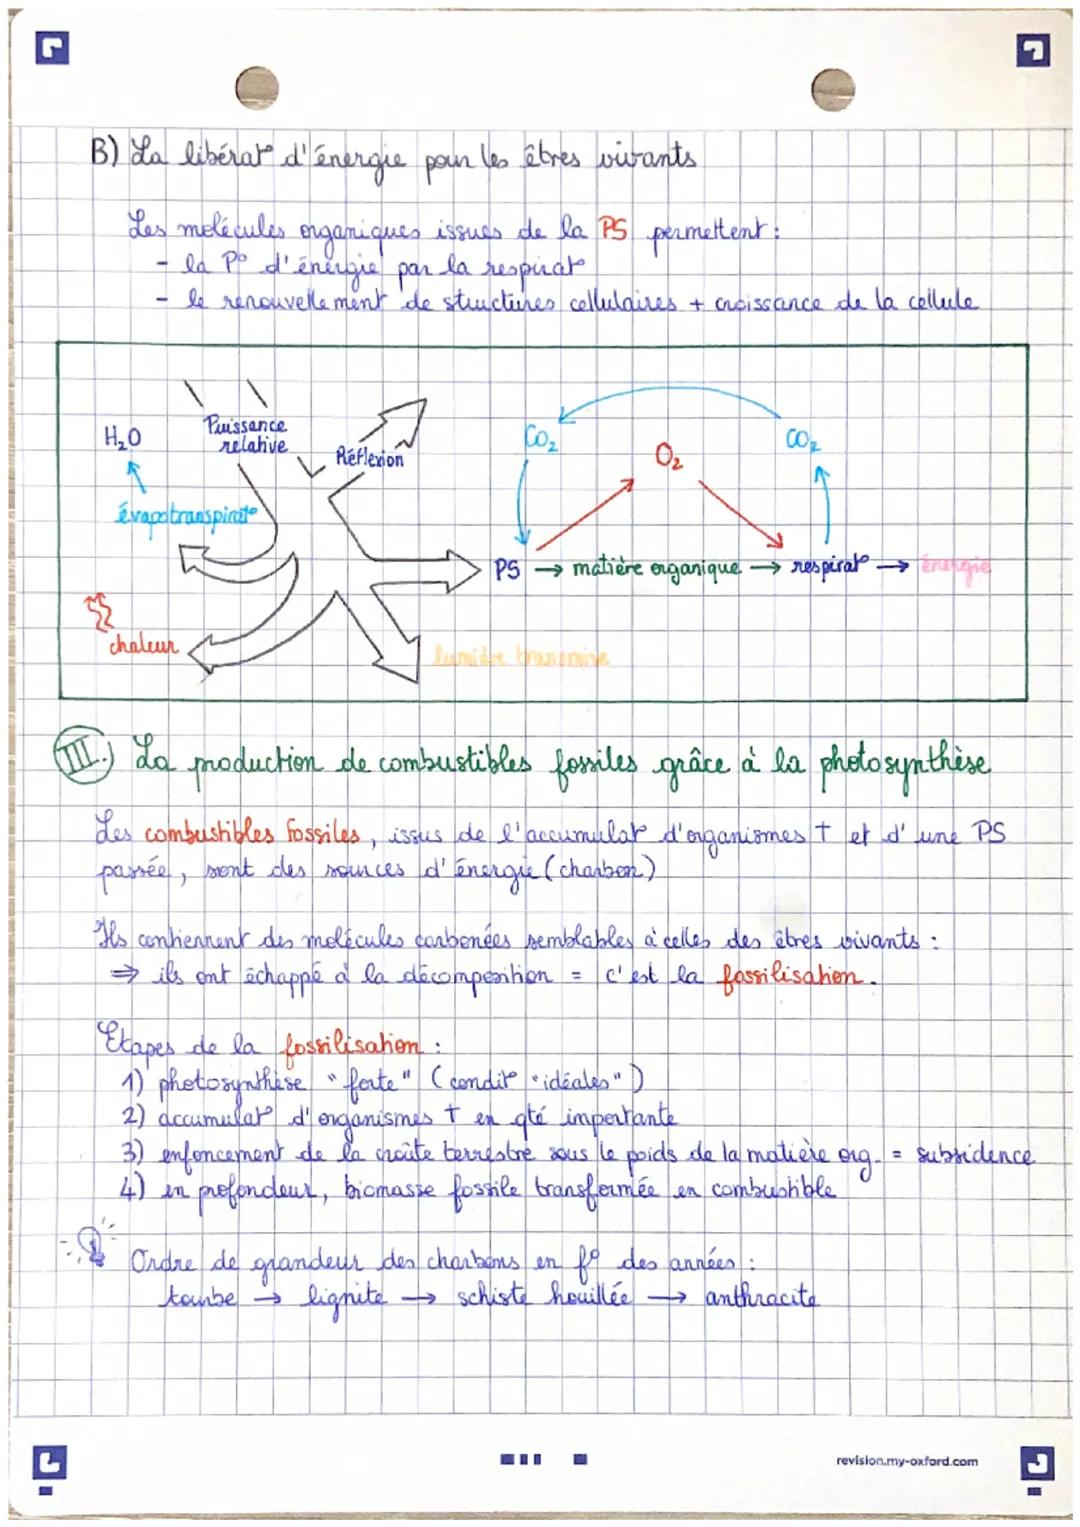 B) La libérat° d'énergie pour les êtres vivants
Les molécules organiques issues de la PS permettent :
- la P° d'énergie par la respirat°
- le renouvellement de structures cellulaires + croissance de la cellule
Puissance
relative
H₂O
Réflexion
CO₂
O₂
CO₂
évapotranspirat°
PS → matière organique → respirat° → énergie
chaleur
lumière transmise
III.) La production de combustibles fossiles grâce à la photosynthèse
Les combustibles fossiles, issus de l'accumulat° d'organismes † et d'une PS
passée, sont des sources d'énergie (charbon)
Ils contiennent des molécules carbonées semblables à celles des êtres vivants :
⇒ ils ont échappé à la décomposition = c'est la fossilisation.
Etapes de la fossilisation :
1) photosynthèse "forte" (condit° "idéales")
2) accumulat° d'organismes † en qté importante
3) enfoncement de la croûte terrestre sous le poids de la matière org. = subsidence
4) en profondeur, biomasse fossile transformée en combustible
Ordre de grandeur des charbons en f° des années :
tourbe → lignite → schiste houillée → anthracite
revision.my-oxford.com